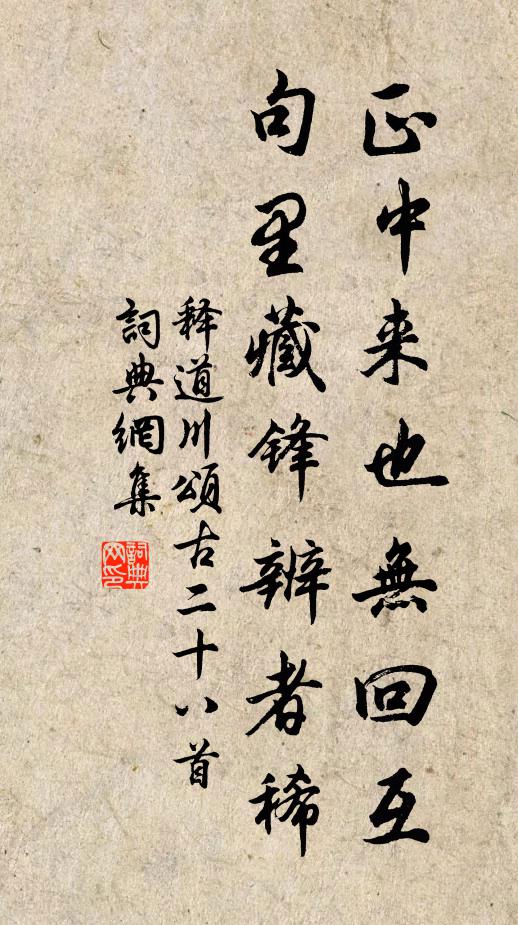 正中来也無回互
句里藏锋辨者稀
释道川頌古二十八首
詞典網集
詞典
网印